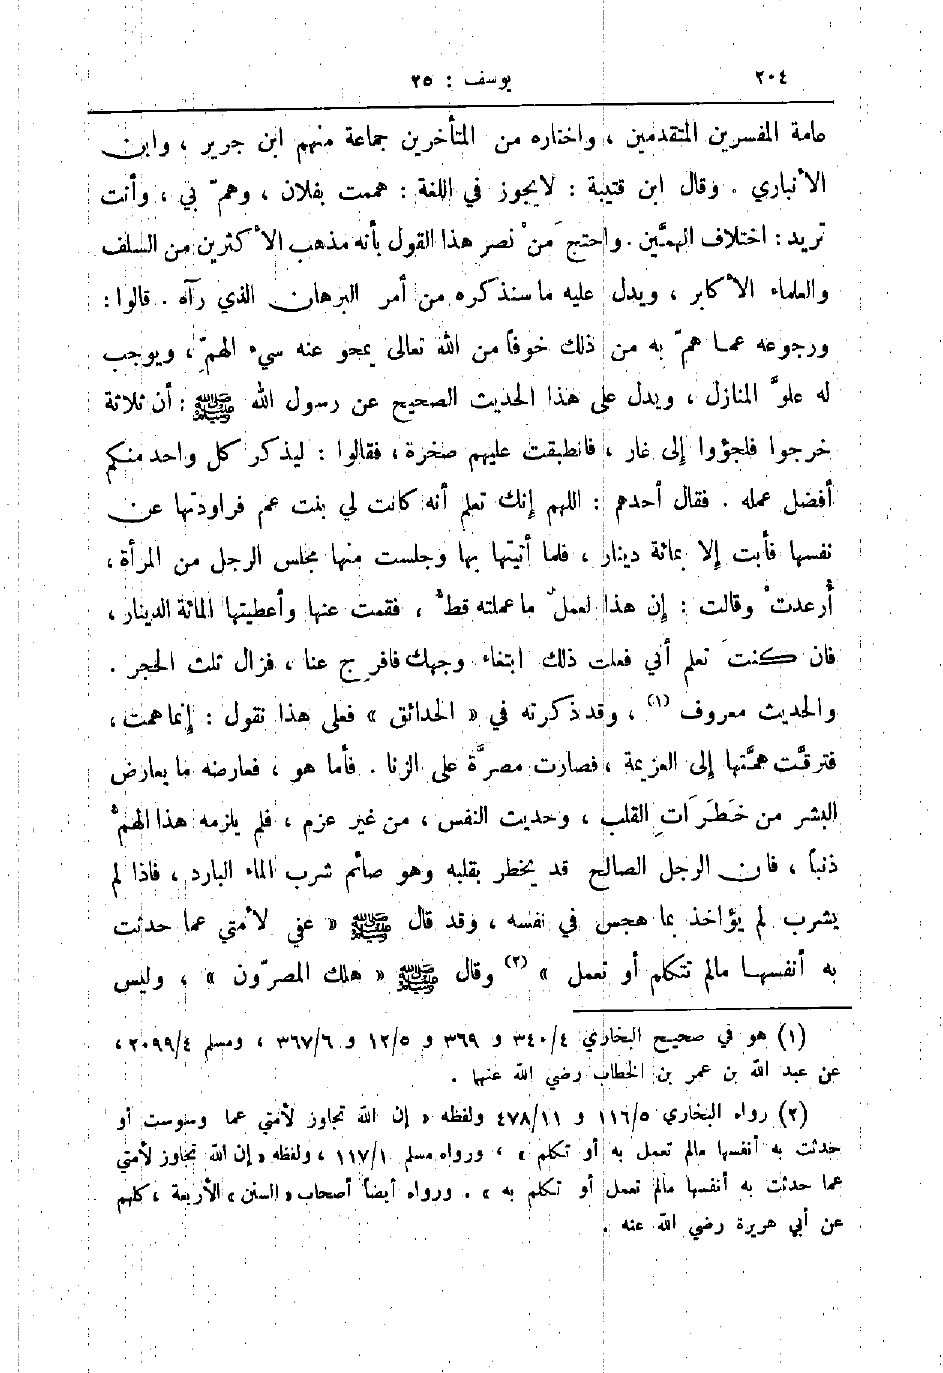 ٢٠٤ يوسف : ٢٥
عامة المفسرين المتقدمين ، واختاره من المتأخرين جماعة منهم ابن جرير ، وابن
الأنباري . وقال ابن قتيبة : لايجوز في اللغة : هممت بفلان ، وهمّ بي ، وأنت
تريد : اختلاف الهمَّين . واحتج مَنْ نصر هذا القول بأنه مذهب الأكثرين من السلف
والعلماء الأكابر ، ويدل عليه ما سنذكره من أمر البرهان الذي رآه . قالوا :
ورجوعه عما همّ به من ذلك خوفاً من الله تعالى يمحو عنه سيء الهمِّ ، ويوجب
له علوَّ المنازل ، ويدل على هذا الحديث الصحيح عن رسول الله ﷺ : أن ثلاثة
خرجوا فلجؤوا إلى غار ، فانطبقت عليهم صخرة ، فقالوا : ليذكر كل واحد منكم
أفضل عمله . فقال أحدهم : اللهم إنك تعلم أنه كانت لي بنت عم فراودتها عن
نفسها فأبت إلا بمائة دينار ، فلما أتيتها بها وجلست منها مجلس الرجل من المرأة ،
أُرعدتْ وقالت : إن هذا لعملٌ ما عملته قطُّ ، فقمت عنها وأعطيتها المائة الدينار ،
فان كنتَ تعلم أني فعلت ذلك ابتغاء وجهك فافرِج عنا ، فزال ثلث الحجر .
والحديث معروف (١) ، وقد ذكرته في « الحدائق » فعلى هذا نقول : إنما همت ،
فترقَّت همَّتها إلى العزيمة ، فصارت مصرَّة على الزنا . فأما هو ، فعارضه ما يعارض
البشر من خَطَرَاتِ القلب ، وحديث النفس ، من غير عزم ، فلم يلزمه هذا الهمُّ
ذنباً ، فان الرجل الصالح قد يخطر بقلبه وهو صائم شرب الماء البارد ، فاذا لم
يشرب لم يؤاخذ بما هجس في نفسه ، وقد قال ﷺ « عفي لأمتي عما حدثت
به أنفسها مالم تتكلم أو تعمل » (٢) وقال ﷺ « هلك المصرّون » ، وليس
(١) هو في صحيح البخاري ٣٤٠/٤ و ٣٦٩ و ١٢/٥ و ٣٦٧/٦ ، ومسلم ٢٠٩٩/٤ ،
عن عبد الله بن عمر بن الخطاب رضي الله عنها .
(٢) رواه البخاري ١١٦/٥ و ٤٧٨/١١ ولفظه « إن الله تجاوز لأمتي عما وسوست أو
حدثت به أنفسها مالم تعمل به أو تكلم » ، ورواه مسلم ١١٧/١ ، ولفظه « إن الله تجاوز لأمتي
عما حدثت به أنفسها مالم تعمل أو تكلم به » . ورواه أيضاً أصحاب « السنن » الأربعة ، كلهم
عن أبي هريرة رضي الله عنه .